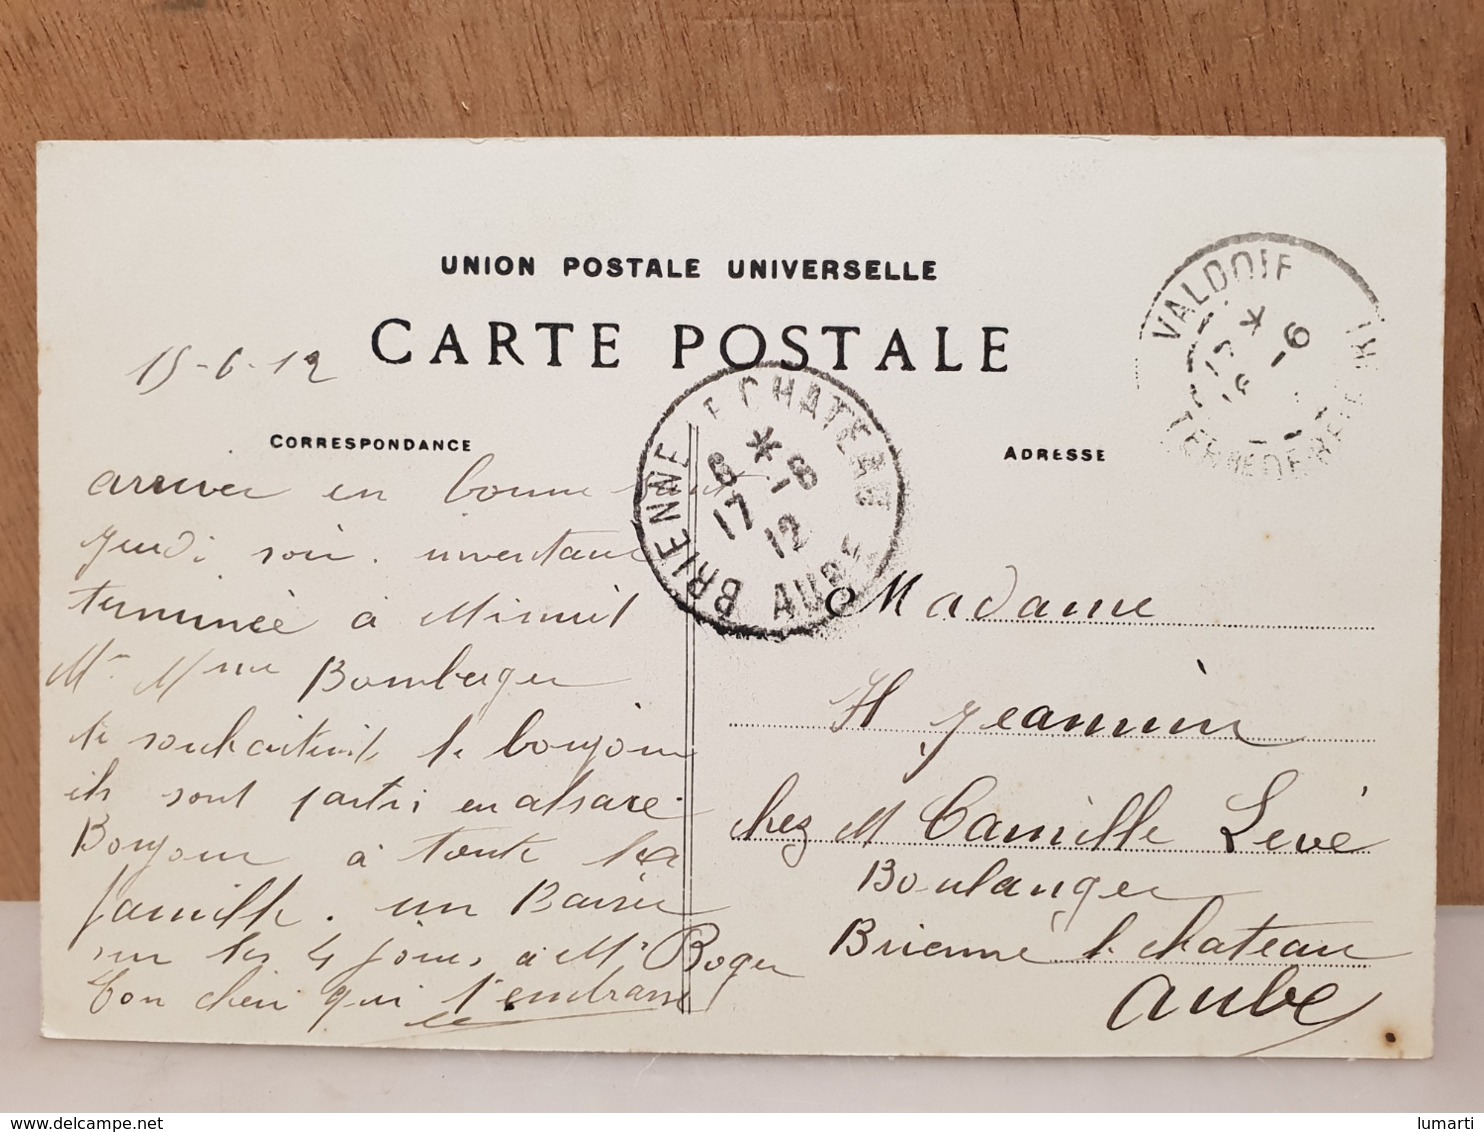 UNION POSTALE UNIVERSELLE
CARTE POSTALE
15-6-12
CORRESPONDANCE
ADRESSE
VALDOIE
17 * -6
BRIENNE LE CHATEAU
8 * -6
17 12
AUBE
arriver en bonne
jeudi soir. inventaire
terminée à Minuit
Mr Mme Bomberger
te souhaitent le bonjour
ils sont partis en alsace.
Bonjour à toute la
famille. un Baiser
sur les 4 joues à Mr Roger
Ton cheri qui t'embrasse
Madame
H Jeannin
chez M Camille Levé
Boulanger
Brienne le chateau
aube
lumarti
www.delcampe.net